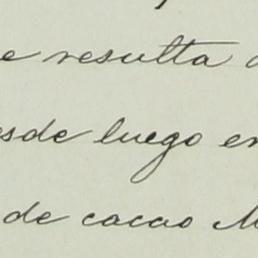 e resulta
esde luego en
de cacao